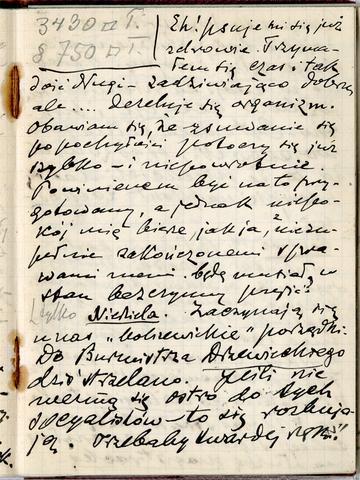 3430 □ T.
§ 750 □ T.
Eh! psuje mi się już
zdrowie. Trzyma-
łem się czas i tak
dość długi – zadziwiająco dobrze
ale.... deseluje się organizm.
Obawiam się, że zsuwanie się
po pochyłości potoczy się już
szybko – i niepowrotnie.
Powinienem być na to przy-
gotowany, a jednak niepo-
kój mię bierze, jak ja, z niezu-
pełnie zakończonemi spra-
wami memi będę musiał w
stan bezczynny przejść
tylko Niedziela. Zaczynają się
u nas "bolszewickie" porządki.
Do Burmistrza Drzewieckiego
dziś strzelano. Jeśli nie
wezmą się ostro do tych
socyalistów – to się rozbuja-
ją. Trzebaby twardej ręki!